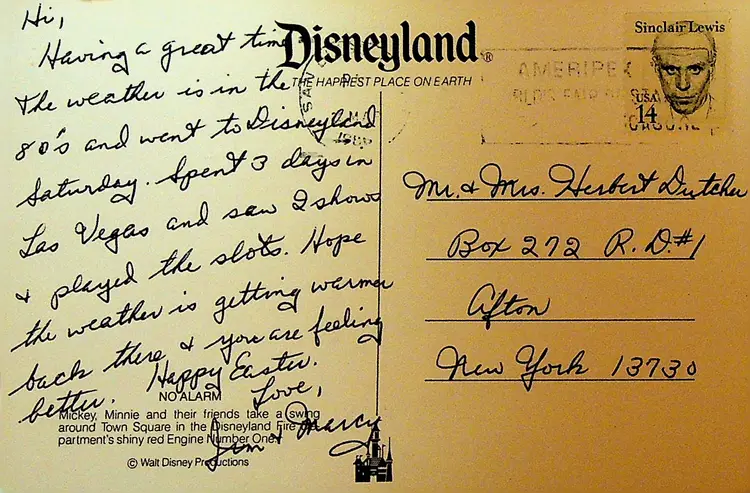 Hi,
Having a great time
The weather is in the
80's and went to Disneyland
Saturday. Spent 3 days in
Las Vegas and saw 2 shows
& played the slots. Hope
the weather is getting warmer
back there & you are feeling
better. Happy Easter.
Love,
Jim & Marcy
NO ALARM
Mickey, Minnie and their friends take a swing
around Town Square in the Disneyland Fire De-
partment's shiny red Engine Number One!
© Walt Disney Productions
Disneyland®
THE HAPPIEST PLACE ON EARTH
AMERIPEX
1986
Sinclair Lewis
USA
14
Mr. & Mrs. Herbert Dutcher
Box 272 R.D.#1
Afton
New York 13730